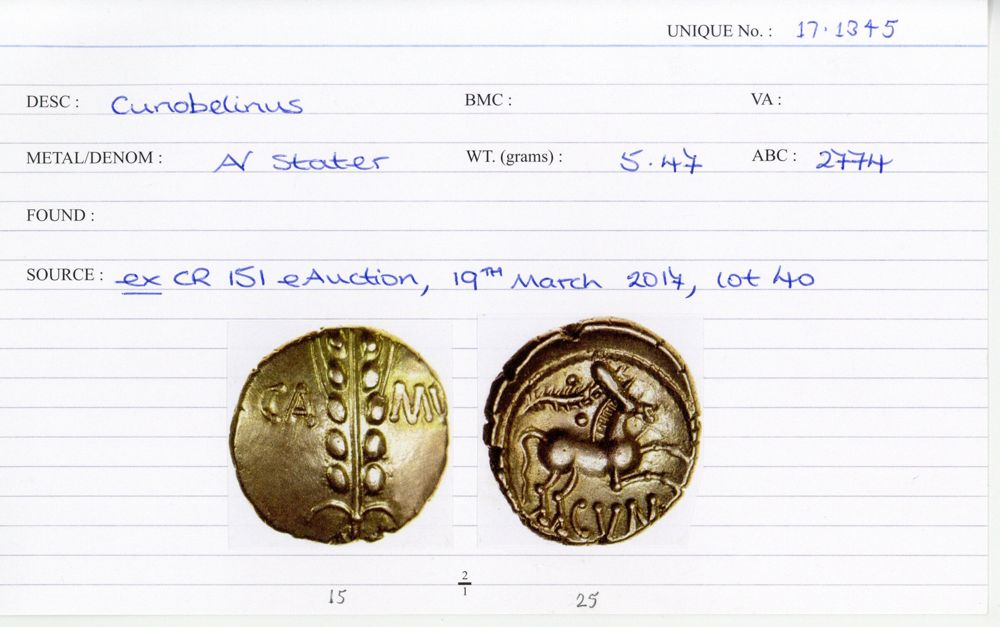 UNIQUE No. : 17.1345
DESC : Cunobelinus BMC : VA :
METAL/DENOM : AV Stater WT. (grams) : 5.47 ABC : 2774
FOUND :
SOURCE : ex CR 151 eAuction, 19TH March 2017, lot 40
CA MV
CVN
2/1
15 25